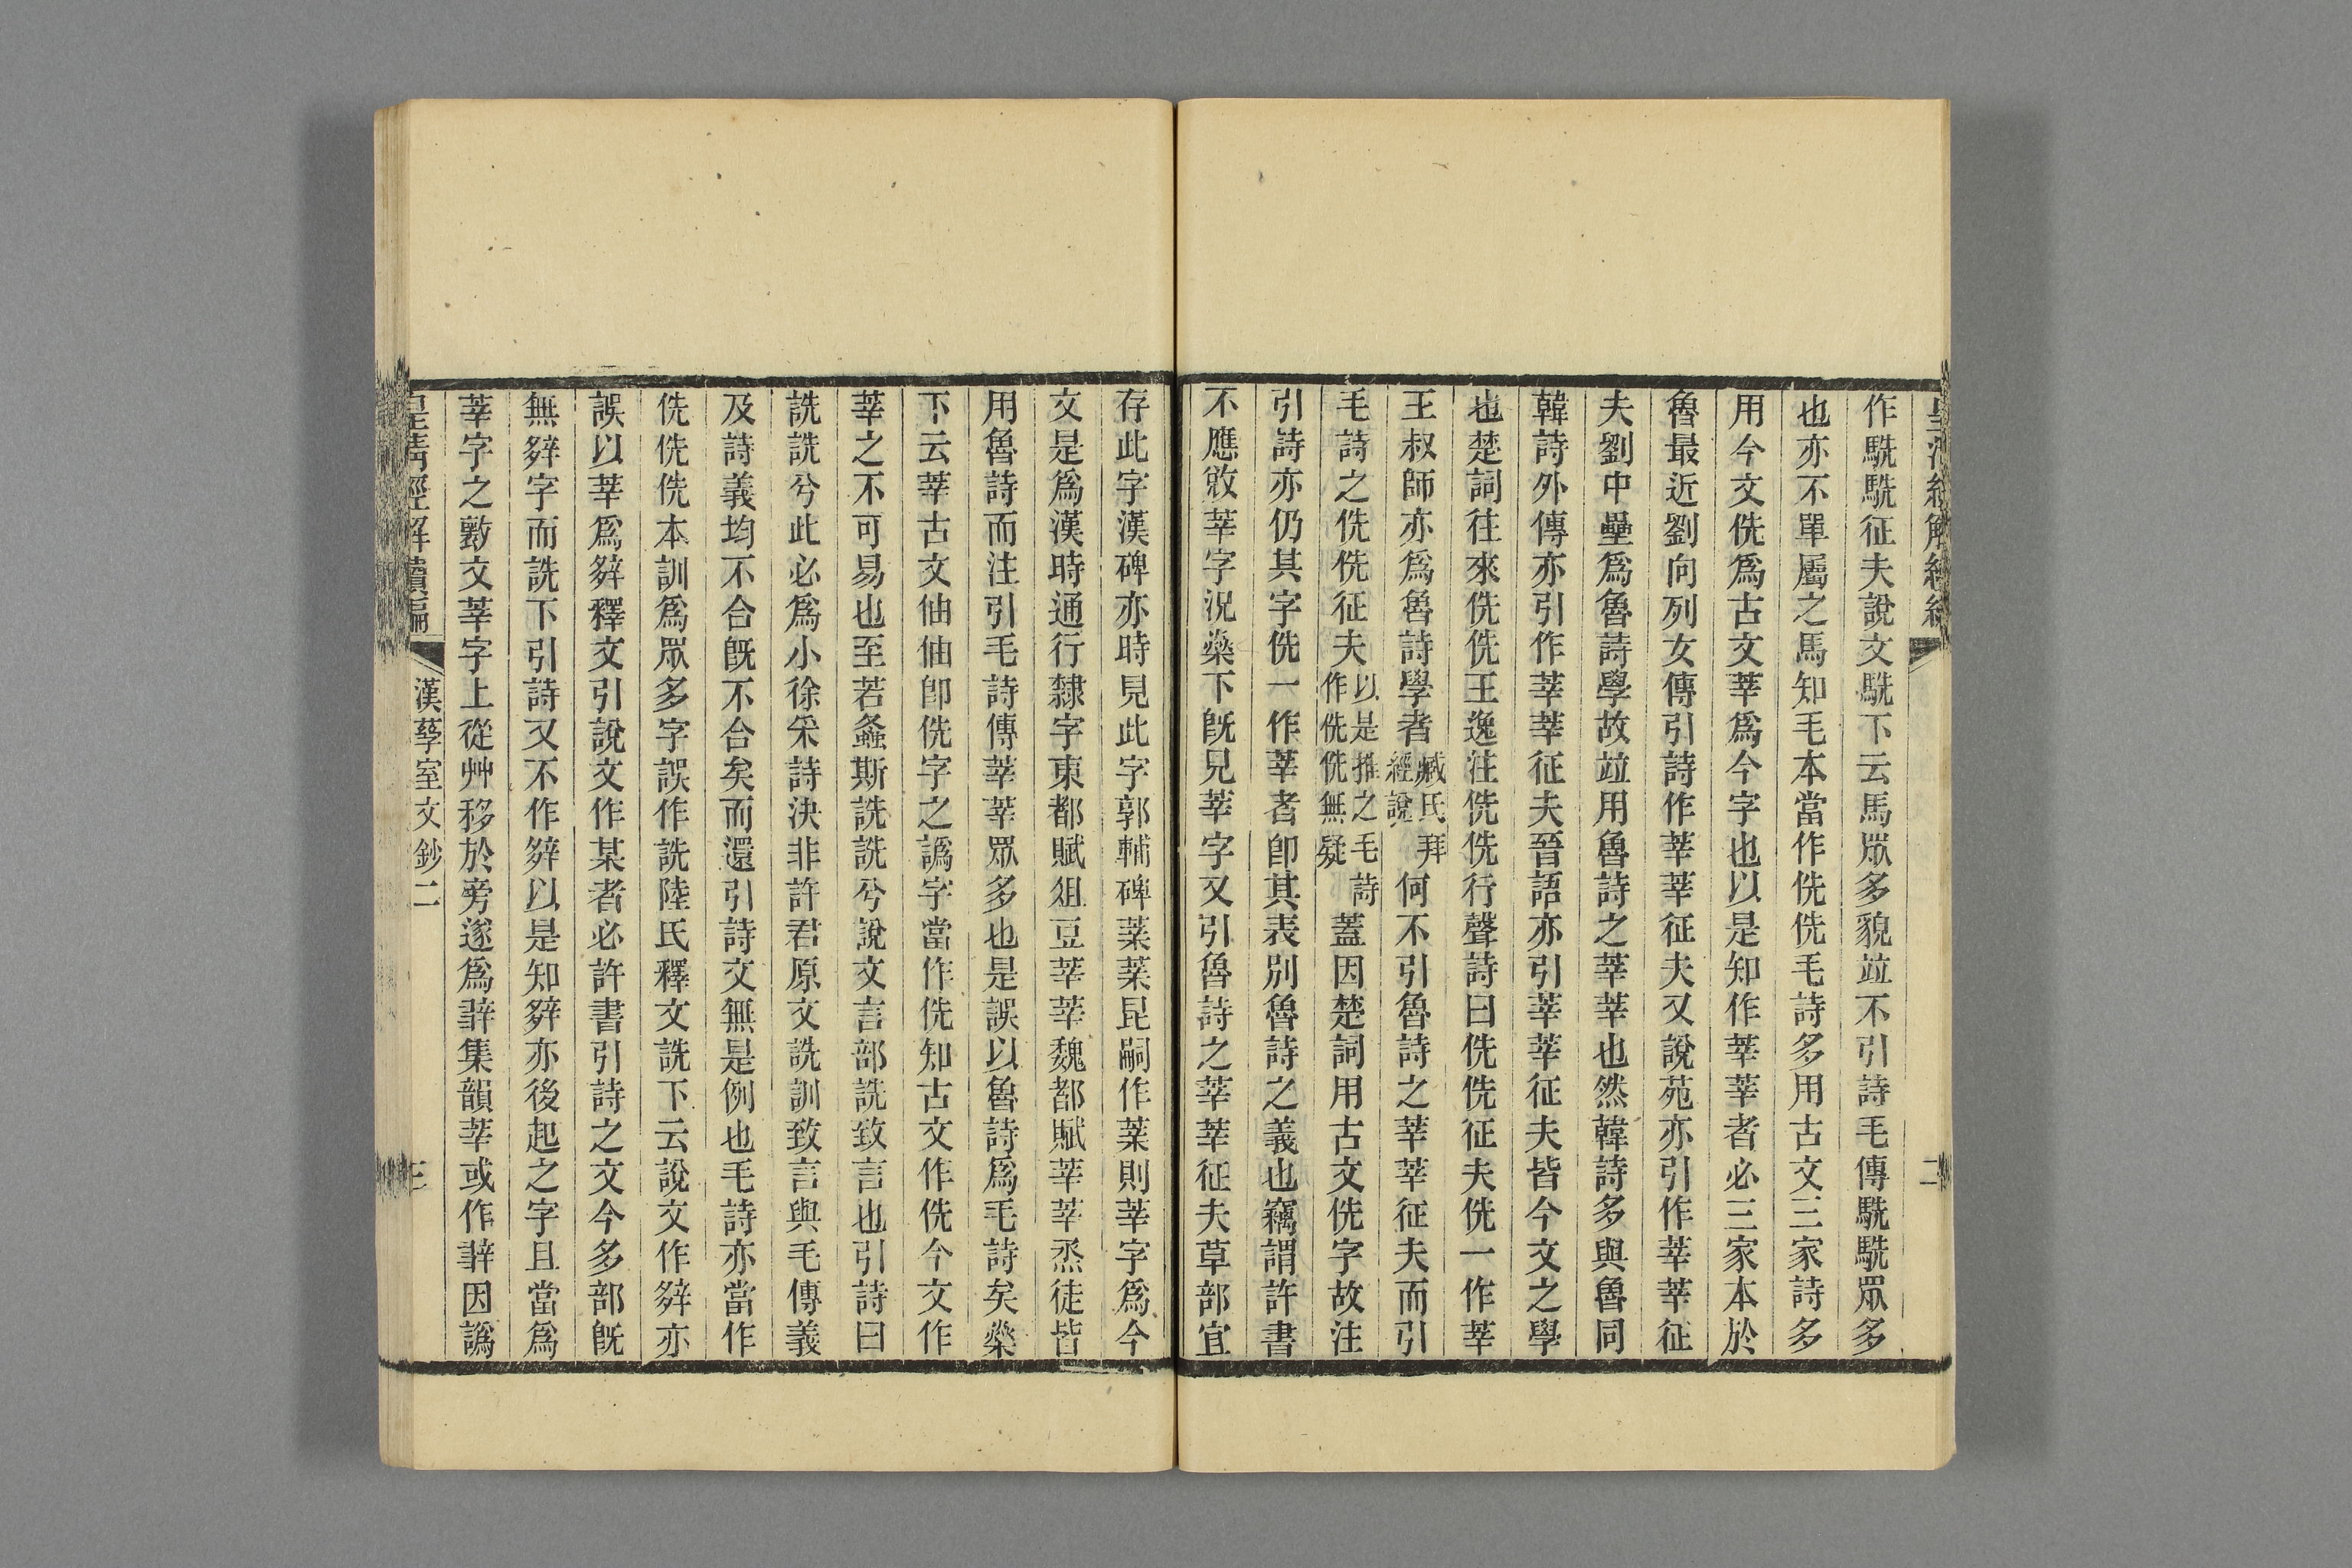 皇清經解續編
二
作駪駪征夫說文駪下云馬眾多貌竝不引詩毛傳駪駪眾多
也亦不單屬之馬知毛本當作侁侁毛詩多用古文三家詩多
用今文侁爲古文莘爲今字也以是知作莘莘者必三家本於
魯最近劉向列女傳引詩作莘莘征夫又說苑亦引作莘莘征
夫劉中壘爲魯詩學故竝用魯詩之莘莘也然韓詩多與魯同
韓詩外傳亦引作莘莘征夫晉語亦引莘莘征夫皆今文之學
也楚詞往來侁侁王逸注侁侁行聲詩曰侁侁征夫侁一作莘
王叔師亦爲魯詩學者臧氏拜經說何不引魯詩之莘莘征夫而引
毛詩之侁侁征夫以是推之毛詩作侁侁無疑蓋因楚詞用古文侁字故注
引詩亦仍其字侁一作莘者卽其表別魯詩之義也竊謂許書
不應敚莘字況燊下旣見莘字又引魯詩之莘莘征夫草部宜
存此字漢碑亦時見此字郭輔碑葉葉昆嗣作葉則莘字爲今
文是爲漢時通行隸字東都賦俎豆莘莘魏都賦莘莘烝徒皆
用魯詩而注引毛詩傳莘莘眾多也是誤以魯詩爲毛詩矣燊
下云莘古文㑀㑀卽侁字之譌字當作侁知古文作侁今文作
莘之不可易也至若螽斯詵詵兮說文言部詵致言也引詩曰
詵詵兮此必爲小徐采詩決非許君原文詵訓致言與毛傳義
及詩義均不合旣不合矣而還引詩文無是例也毛詩亦當作
侁侁侁本訓爲眾多字誤作詵陸氏釋文詵下云說文作𨐔亦
誤以莘爲𨐔釋文引說文作某者必許書引詩之文今多部旣
無𨐔字而詵下引詩又不作𨐔以是知𨐔亦後起之字且當爲
莘字之斁文莘字上從艸移於旁遂爲𨐔集韻莘或作𨐔因譌
皇清經解續編
漢孳室文鈔二
三